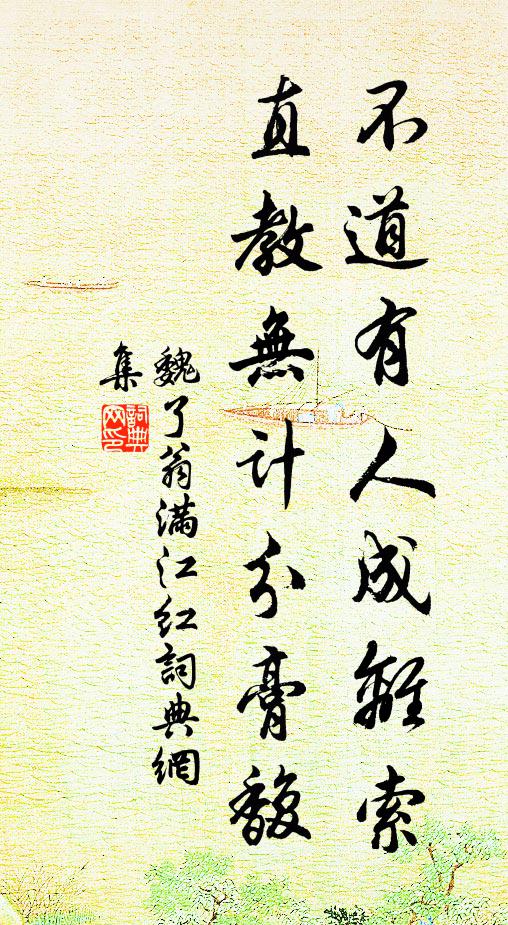 不道有人成離索
直教無計分膏馥
魏了翁滿江紅詞典網
集
詞典網印